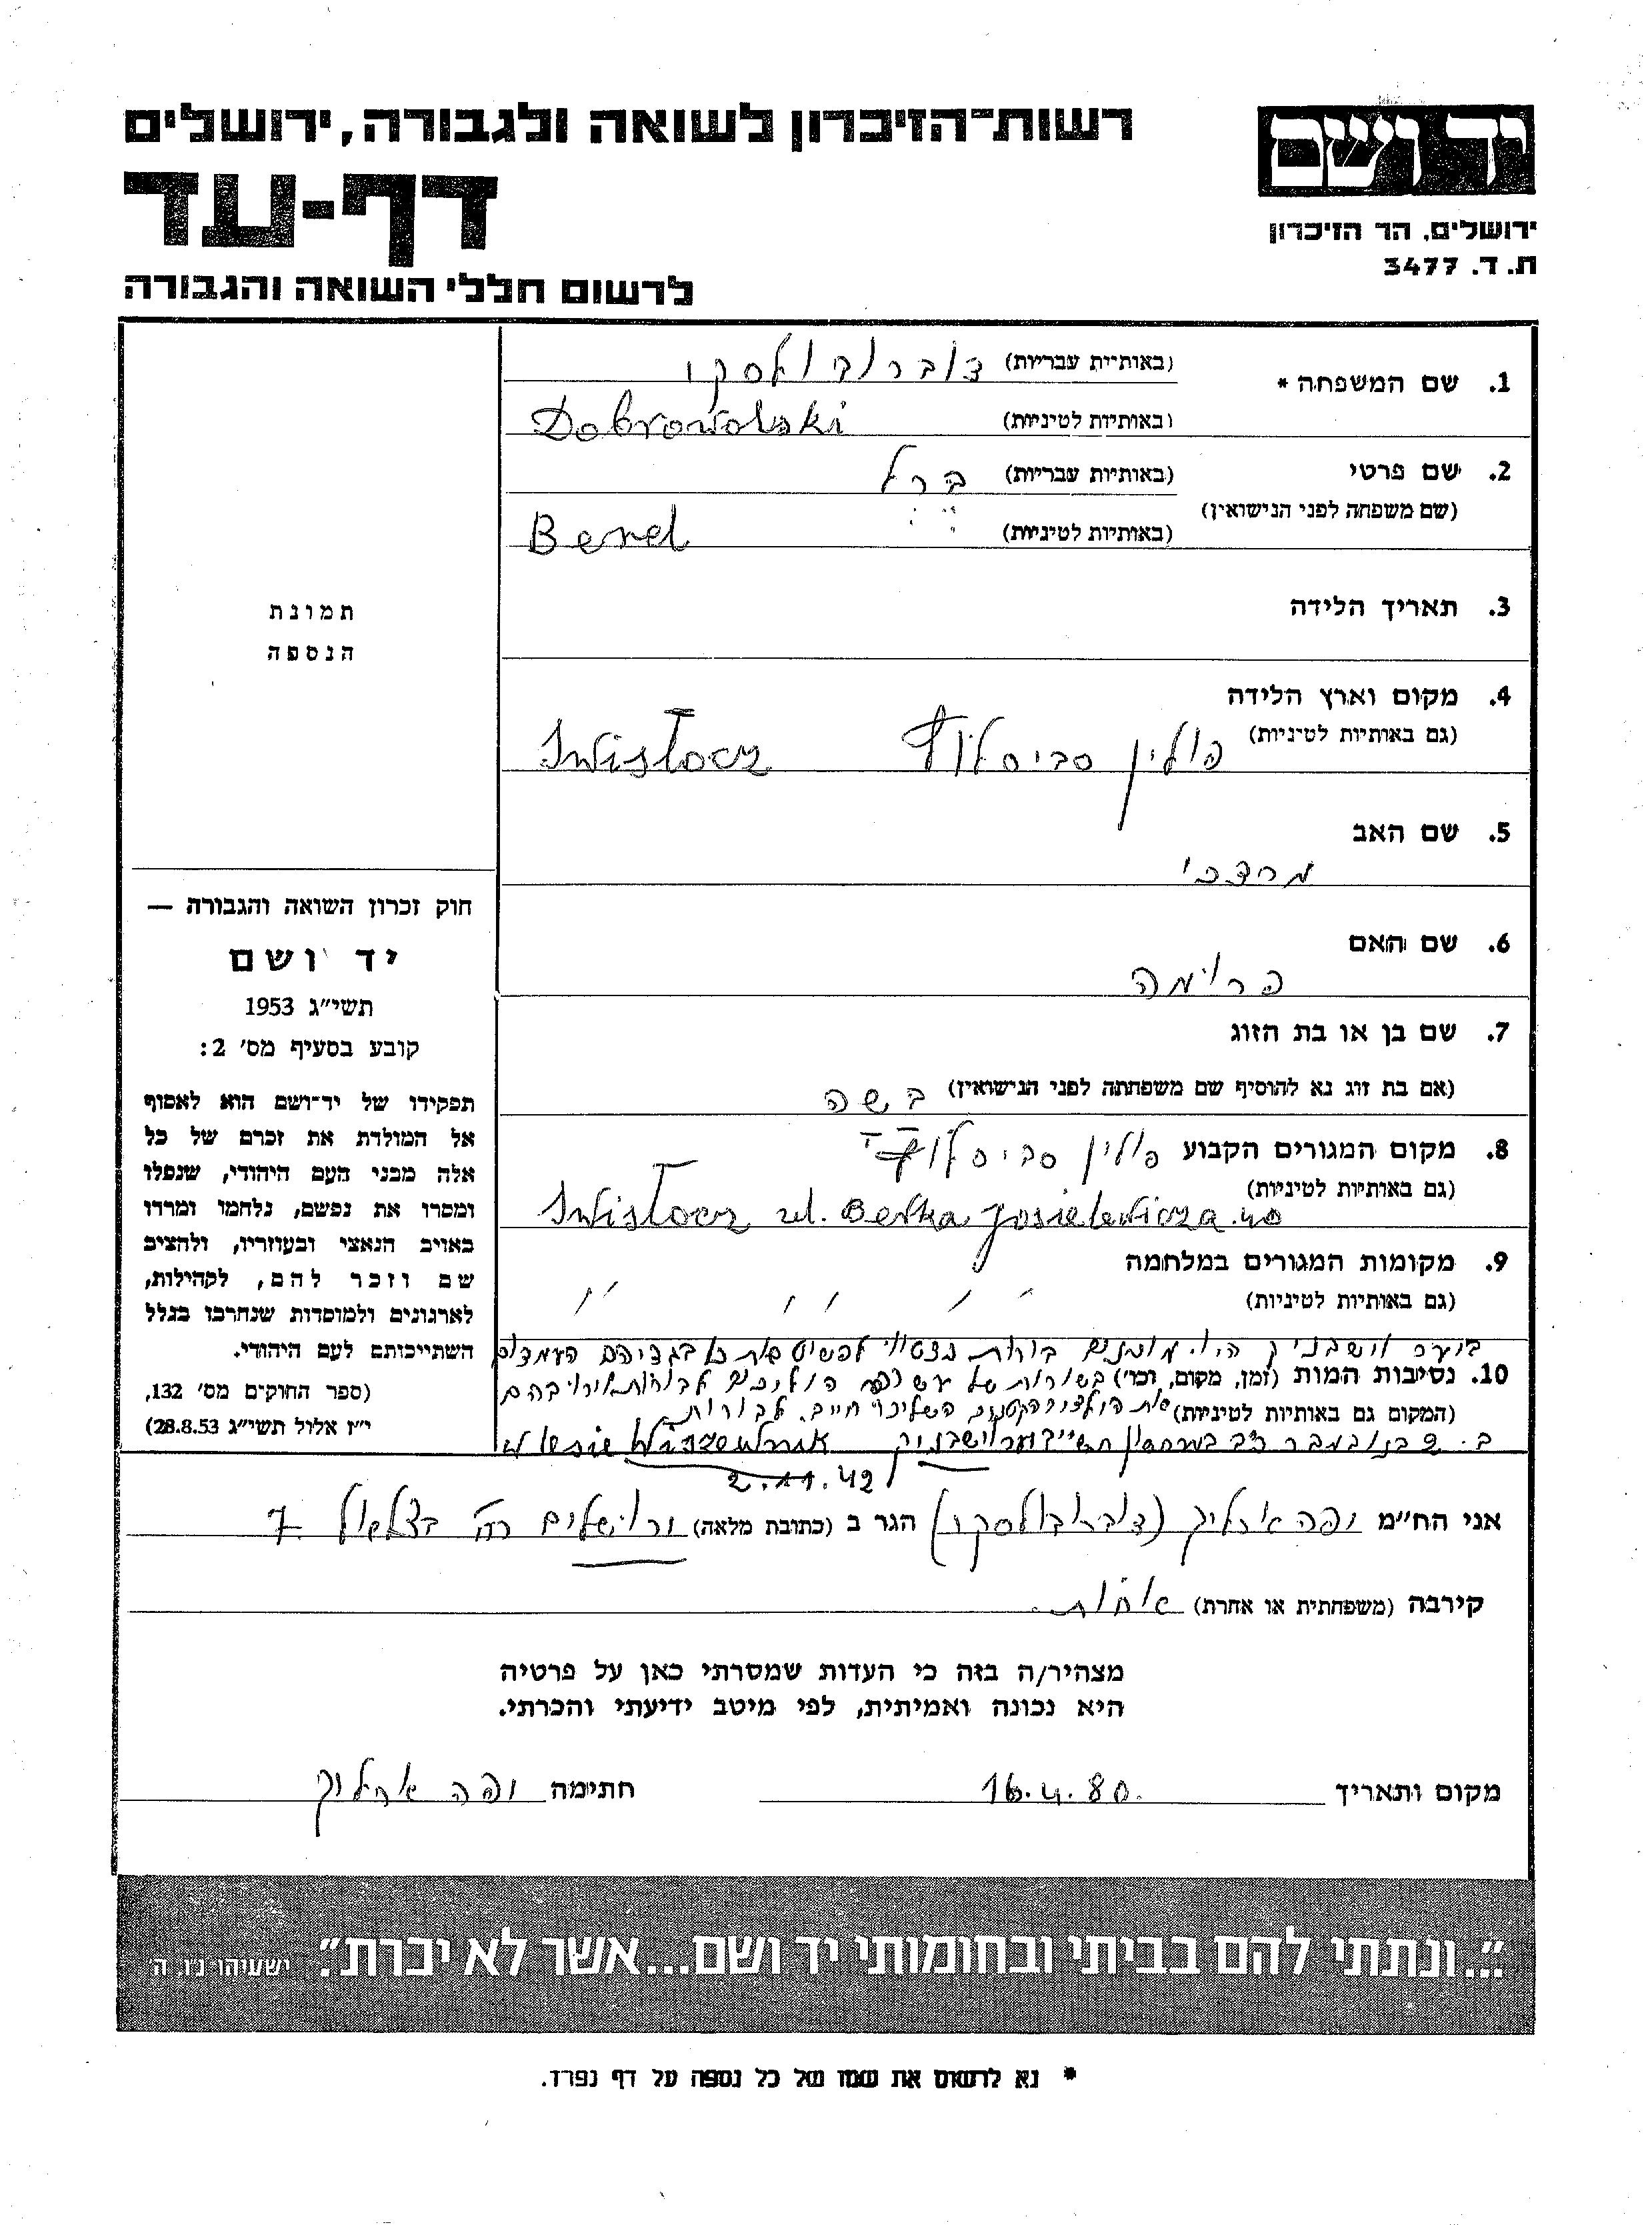 רשות־הזיכרון לשואה ולגבורה, ירושלים
דף-עד
לרשום חללי השואה והגבורה
יד ושם
ירושלים, הר הזיכרון
ת. ד. 3477
1. שם המשפחה * (באותיות עבריות) דוברובולסקי
(באותיות לטיניות) Dobrowolski
2. שם פרטי (באותיות עבריות) ברל
(שם משפחה לפני הנישואין)
(באותיות לטיניות) Berel
3. תאריך הלידה
4. מקום וארץ הלידה
(גם באותיות לטיניות) פולין סביסלוץ Swisłocz
5. שם האב
מרדכי
6. שם האם
פרומה
7. שם בן או בת הזוג
(אם בת זוג נא להוסיף שם משפחתה לפני הנישואין) בשה
8. מקום המגורים הקבוע פולין סביסלוץ
(גם באותיות לטיניות)
Swisłocz ul. Berka Joselewicza 40
9. מקומות המגורים במלחמה
(גם באותיות לטיניות) " " "
ביער וישבניק היו מוכנים בורות נצטוו לפשוט את כל בגדיהם העמדום
10. נסיבות המות (זמן, מקום, וכו') בשורות של עשרה הוליכום לבורות וירו בהם
(המקום גם באותיות לטיניות) את הילדים הקטנים השליכו חיים לבורות
ב. 2 בנובמבר בחשון ביער וישבניק w lesie Wiszewnik
2.11.42
אני הח״מ יפה (דוברובולסקי) הגר ב (כתובת מלאה) ירושלים רח' בצלאל 7
קירבה (משפחתית או אחרת) אחות.
מצהיר/ה בזה כי העדות שמסרתי כאן על פרטיה
היא נכונה ואמיתית, לפי מיטב ידיעתי והכרתי.
מקום ותאריך 16.4.80. חתימה יפה
תמונת
הנספה
חוק זכרון השואה והגבורה —
יד ושם
תשי״ג 1953
קובע בסעיף מס׳ 2:
תפקידו של יד־ושם הוא לאסוף
אל המולדת את זכרם של כל
אלה מבני העם היהודי, שנפלו
ומסרו את נפשם, נלחמו ומרדו
באויב הנאצי ובעוזריו, ולהציב
שם וזכר להם, לקהילות,
לארגונים ולמוסדות שנחרבו בגלל
השתייכותם לעם היהודי.
(ספר החוקים מס׳ 132,
י״ז אלול תשי״ג 28.8.53)
״...ונתתי להם בביתי ובחומותי יד ושם...אשר לא יכרת״. ישעיהו נ״ו, ה׳
* נא לרשום את שמו של כל נספה על דף נפרד.